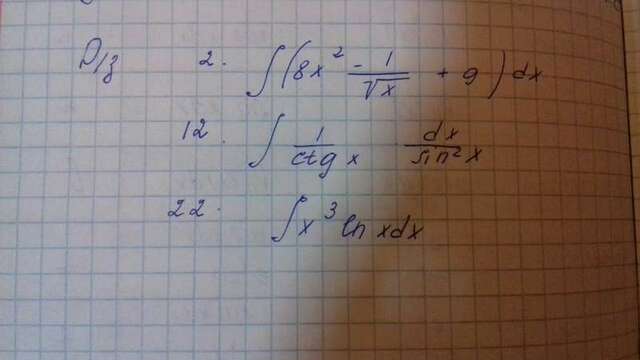 D/з 2. ∫(8x² - 1/√x + 9)dx
12. ∫ 1/ctg x dx/sin²x
22. ∫x³ ln xdx